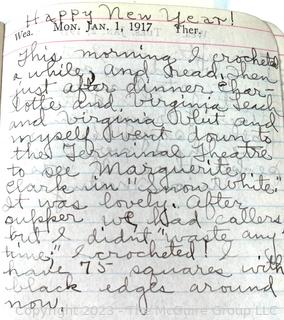 Happy New Year!
Wea. MON. JAN. 1, 1917 Ther.
This morning I crocheted
a while and read. Then
just after dinner Char-
lotte and Virginia
and Virginia and
myself went down to
the Terminal Theatre
to see Marguerite
Clark in "Snow White."
It was lovely. After
supper we had callers
but I didn't "waste any
time," I crocheted! I
have 75 squares with
black edges around
now.
Copyright 2023 - The McGuire Group LLC